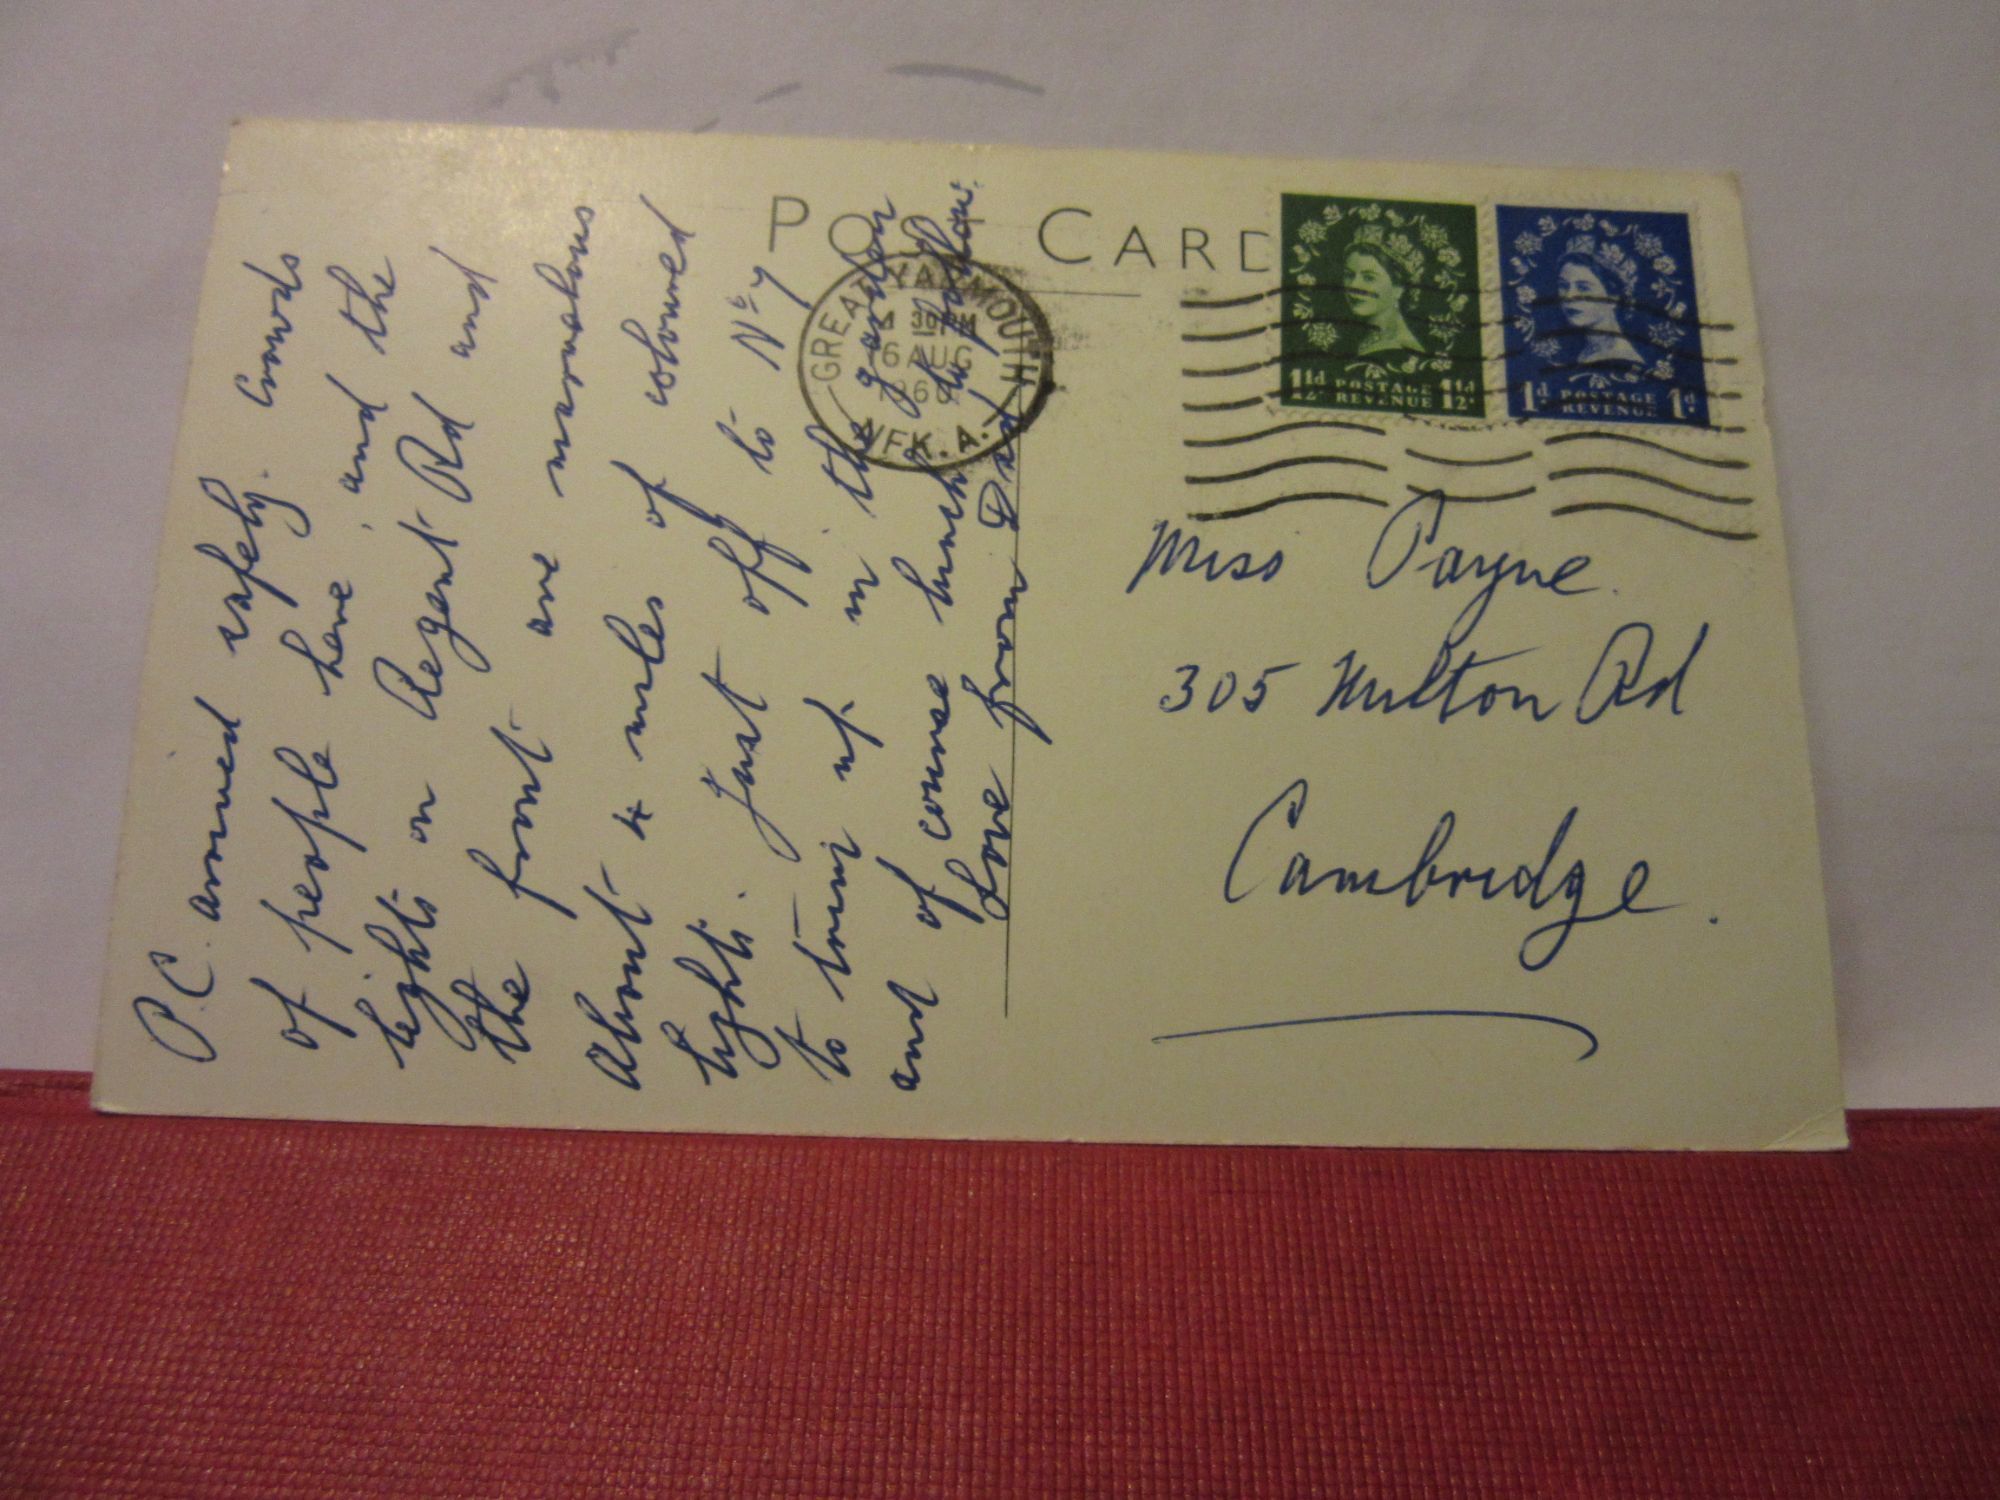 POST CARD
GREAT YARMOUTH
4 30 PM
6 AUG
1960
NFK. A.
1½d POSTAGE REVENUE 1½d
1d POSTAGE REVENUE 1d
P.C. arrived safely. Crowds
of people here, and the
lights on Regent Rd and
the front are marvelous
about 4 miles of coloured
lights. Just off to No 7
to turn up in the garden
and of course lunch
Love from Dad
Miss Payne.
305 Milton Rd
Cambridge.